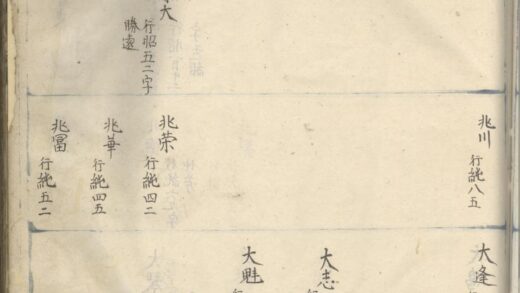 大
行昭五二字
勝遠
兆川
行純八五
兆荣
行純四二
兆華
行純四五
兆冨
行純五二
大逢
大志
大魁